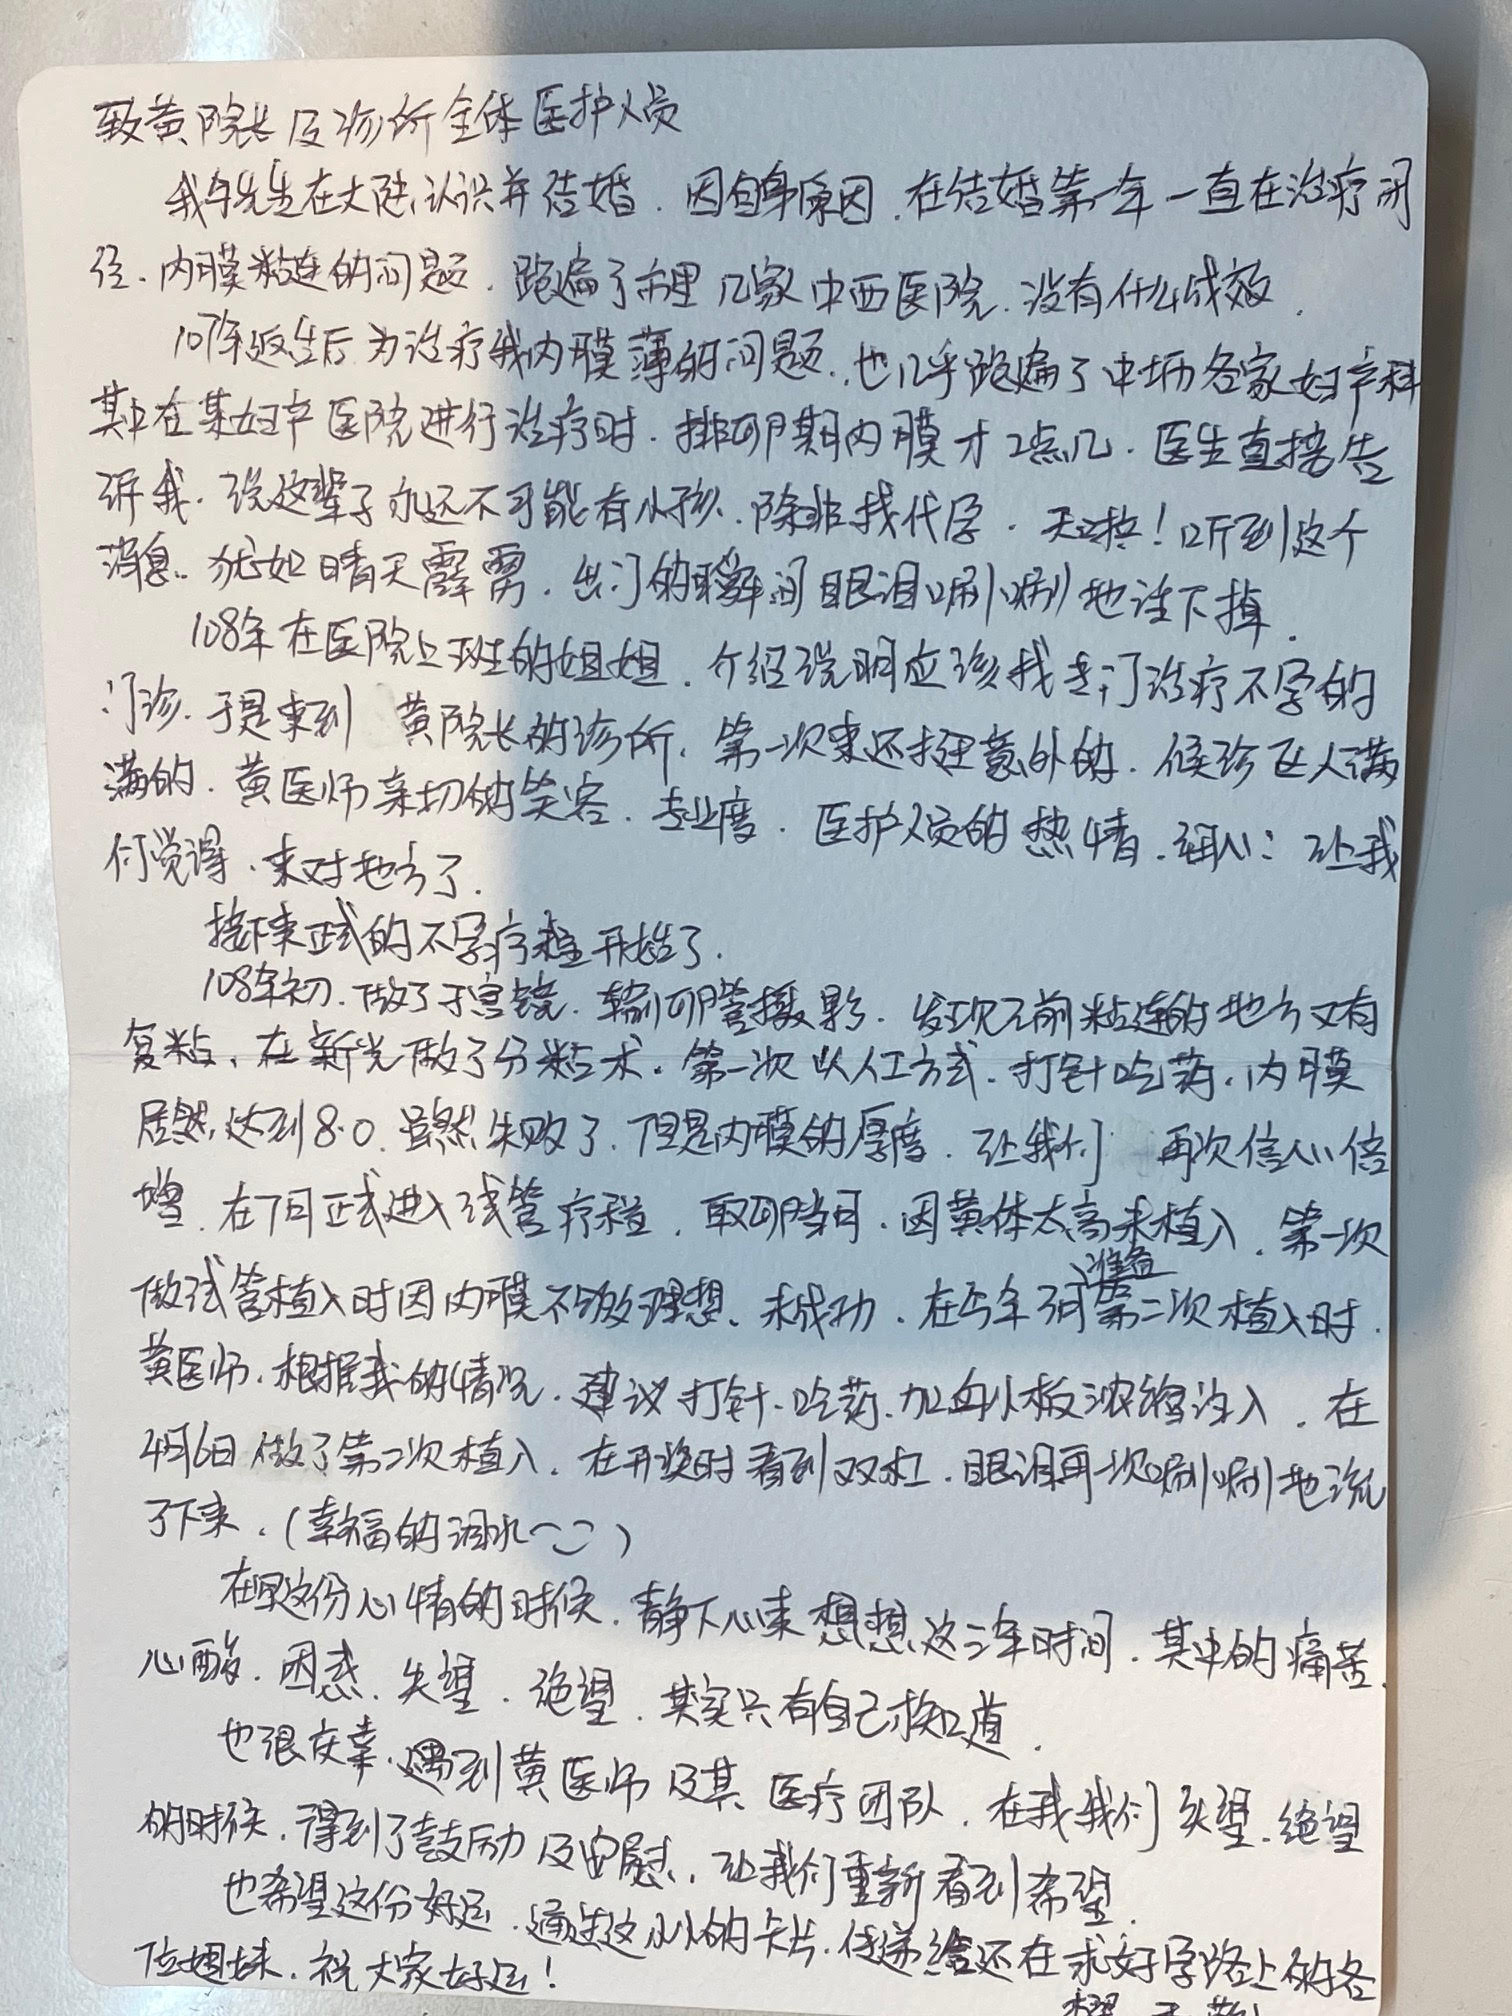 致黄院长及诊所全体医护人员
我与先生在大陆认识并结婚.因自身原因.在结婚第一年一直在治疗闭
经.内膜粘连的问题.跑遍了市里几家中西医院.没有什么成效.
107年返台后为治疗我内膜薄的问题.也几乎跑遍了中坜各家妇产科
其中在某妇产医院进行治疗时.排卵期内膜才2点几.医生直接告
诉我.说这辈子永远不可能有小孩.除非找代孕.天啦!听到这个
消息.犹如晴天霹雳.出门的瞬间眼泪唰唰地往下掉.
108年在医院上班的姐姐.介绍说明应该找专门治疗不孕的
门诊.于是来到黄院长的诊所.第一次来还挺意外的.候诊区人满
满的.黄医师亲切的笑容.专业度.医护人员的热情.细心:让我
们觉得.来对地方了.
接下来正式的不孕疗程开始了.
108年初.做了子宫镜.输卵管摄影.发现之前粘连的地方又有
复粘.在新光做了分粘术.第一次以人工方式.打针吃药.内膜
居然达到8.0.虽然失败了.但是内膜的厚度.让我们再次信心倍
增.在7月正式进入试管疗程.取卵当日.因黄体太高未植入.第一次
做试管植入时因内膜不够理想.未成功.在今年3月准备第二次植入时.
黄医师.根据我的情况.建议打针.吃药.加血小板浓缩注入.在
4月6日做了第二次植入.在开奖时看到双杠.眼泪再一次唰唰地流
了下来.(幸福的泪水~)
在写这份心情的时候.静下心来想想这三年时间.其中的痛苦.
心酸.困惑.失望.绝望.其实只有自己才知道.
也很庆幸.遇到黄医师及其医疗团队.在我我们失望.绝望
的时候.得到了鼓励及安慰.让我们重新看到希望.
也希望这份好运.通过这小小的卡片.传递给还在求好孕路上的各
位姐妹.祝大家好运!